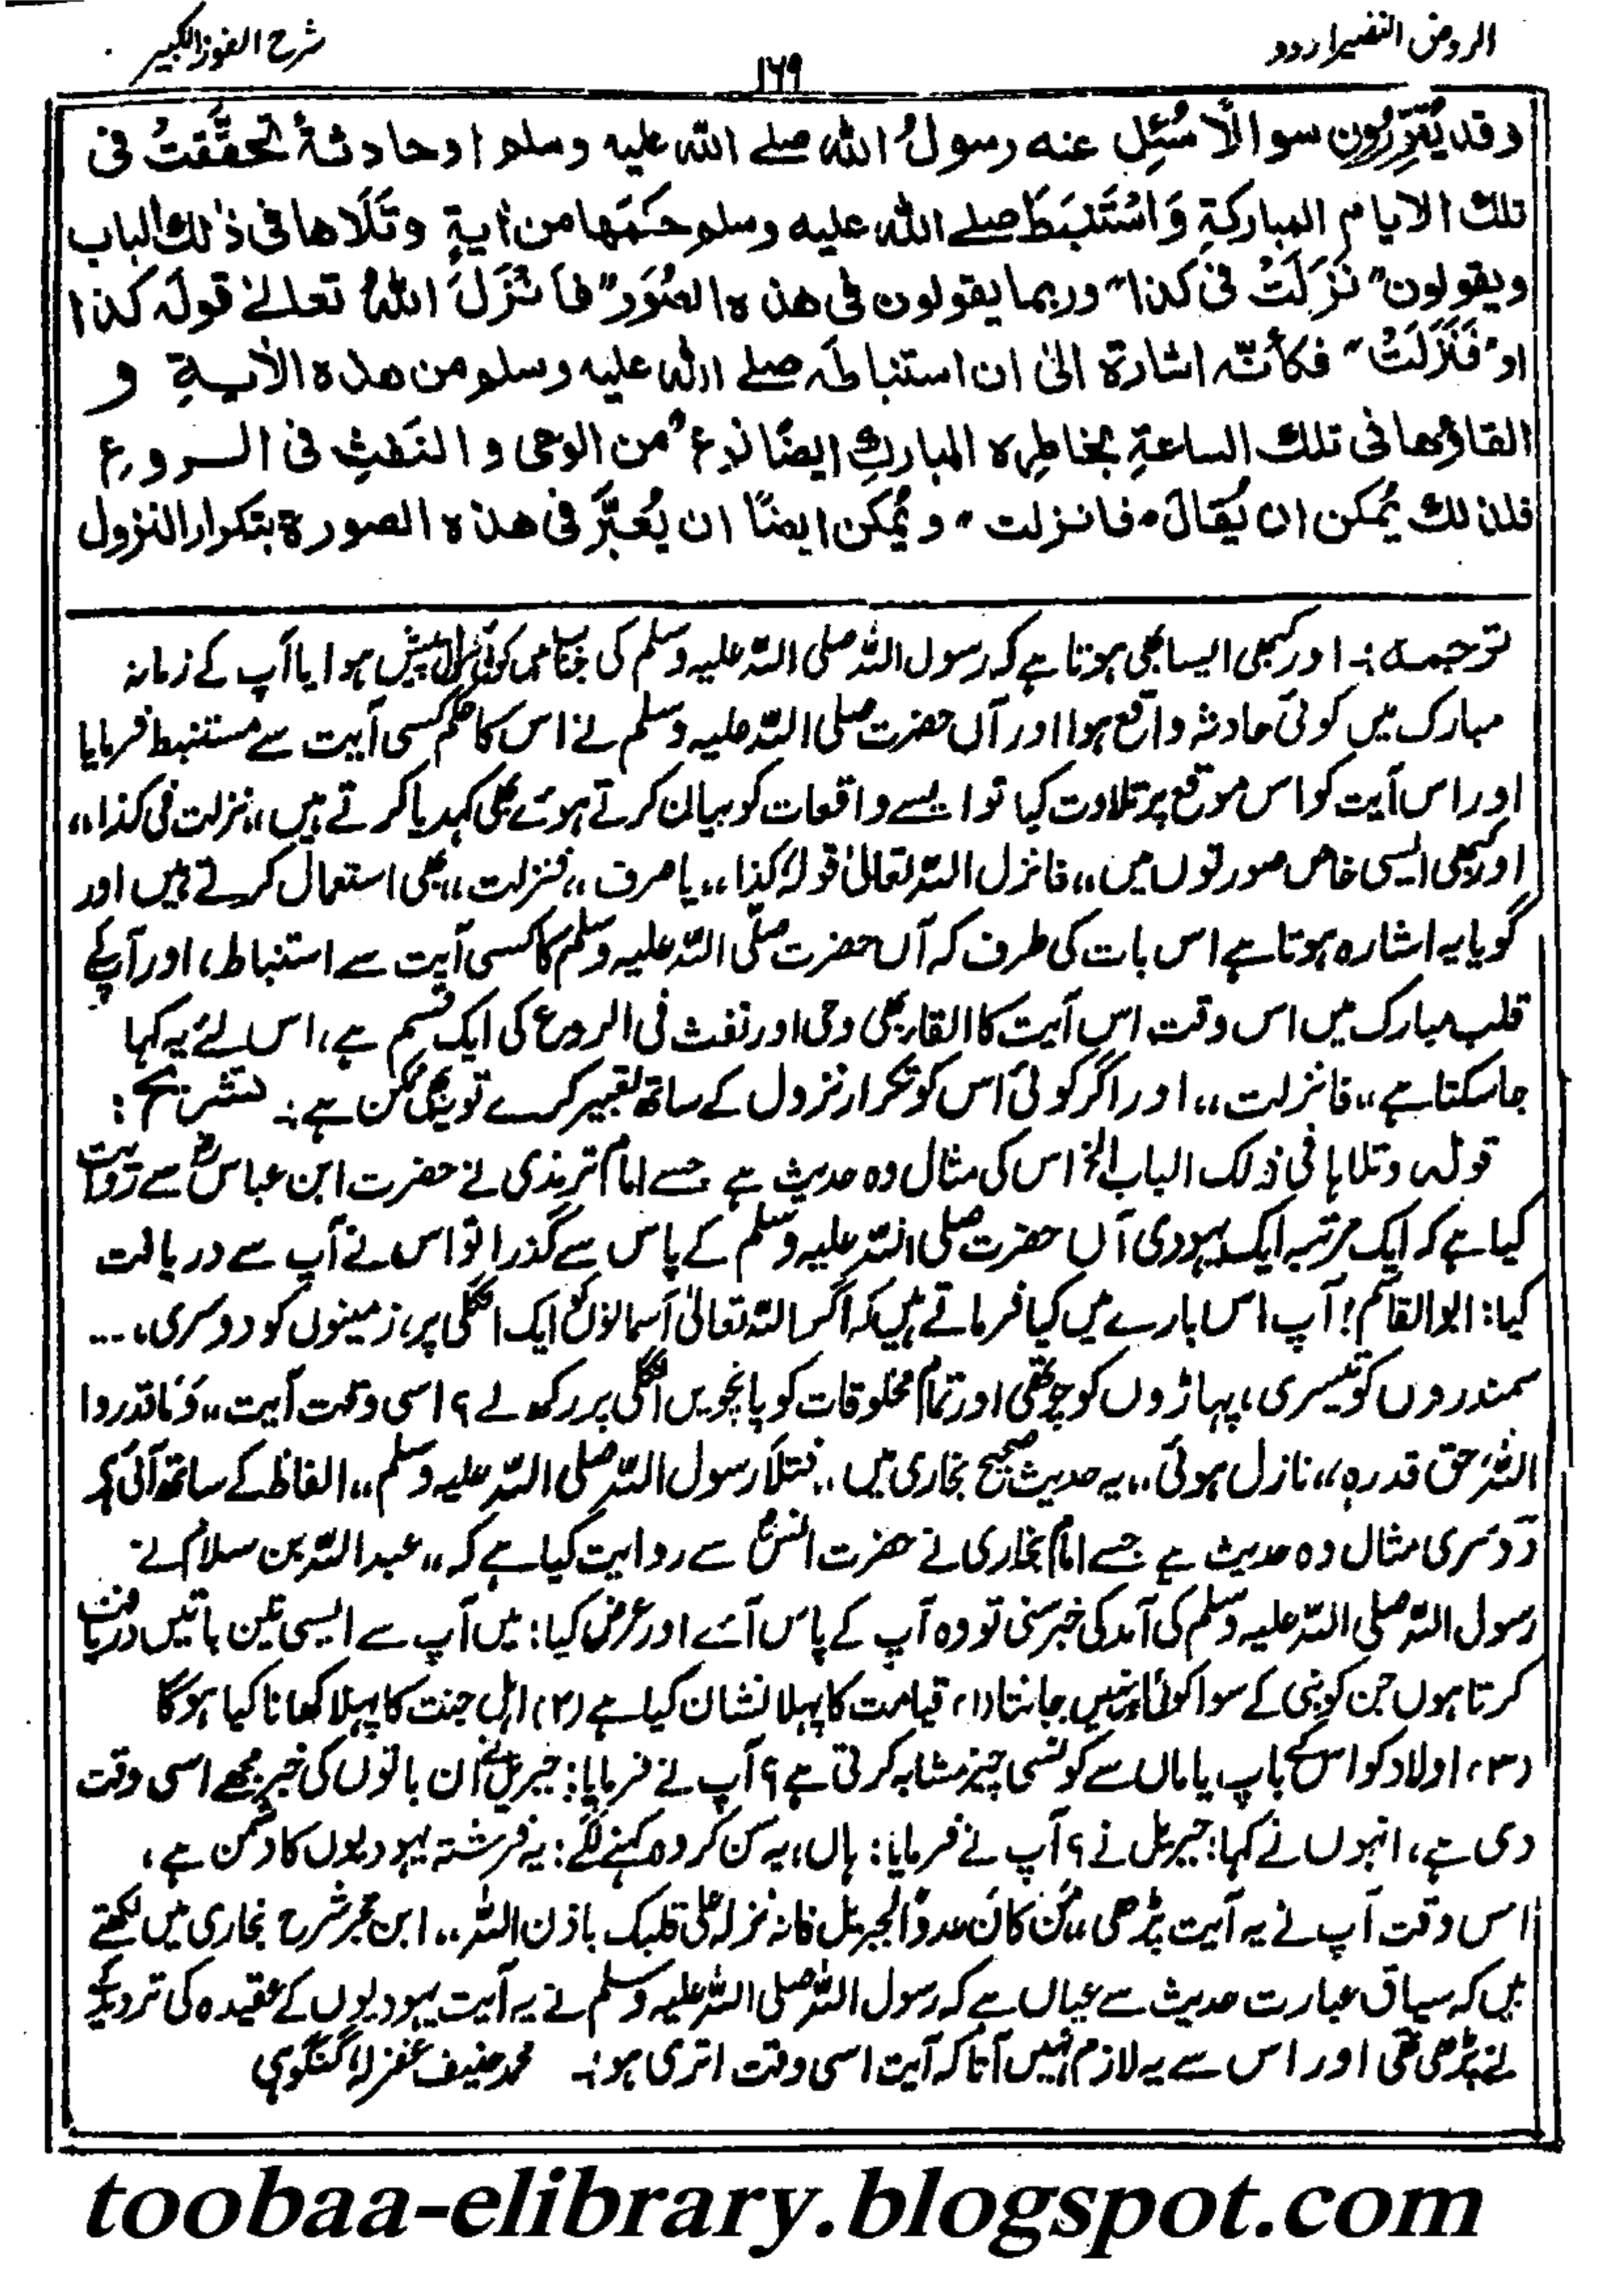 الروض النضیر اردو
۱۶۹
شرح الفوز الکبیر
وقد یُقَرِّرُون سوالًا سُئِل عنه رسولُ الله صلے الله علیه وسلم اوحادثةً تحقَّقتْ فی
تلك الایام المبارکةِ وَاسْتَنْبَطَ صلے الله علیه وسلم حکمَها من اٰیةٍ وتَلَاها فی ذٰلك الباب
ویقولون "نَزَلَتْ فی کذا" وربما یقولون فی هٰذه الصُّوَر "فاَنْزَلَ اللهُ تعالےٰ قولَه کذا
او "فَنَزَلَتْ" فکأنّه اشارة الیٰ ان استنباطَه صلے الله علیه وسلم من هذه الاٰیةِ و
القاؤها فی تلك الساعةِ بخاطِرِه المبارك ایضًا نوعٌ من الوحی والنَفثِ فی الروع
فلذٰلك یُمکن ان یُقالَ "فانزلت" ویُمکن ایضًا ان یُعبَّرَ فی هذه الصورة بتکرار النزول
توجمہ :۔ اور کبھی ایسا بھی ہوتا ہے کہ رسول اللہ صلی اللہ علیہ وسلم کی جناب میں کوئی سوال پیش ہوا یا آپ کے زمانہ
مبارک میں کوئی حادثہ واقع ہوا اور آں حضرت صلی اللہ علیہ وسلم نے اس کا حکم کسی آیت سے مستنبط فرمایا
اور اس آیت کو اس موقع پر تلاوت کیا تو ایسے واقعات کو بیان کرتے ہوئے بھی کہدیا کرتے ہیں ،،نزلت فی کذا،،
اور کبھی ایسی خاص صورتوں میں ،،فانزل اللہ تعالیٰ قولہٗ کذا،، یا صرف ،،فنزلت،، بھی استعمال کرتے ہیں اور
گویا یہ اشارہ ہوتا ہے اس بات کی طرف کہ آں حضرت صلّی اللہ علیہ وسلم کا کسی آیت سے استنباط، اور آپکے
قلب مبارک میں اس وقت اس آیت کا القار بھی وحی اور نفث فی الروع کی ایک قسم ہے، اس لئے یہ کہا
جا سکتا ہے ،،فانزلت،، اور اگر کوئی اس کو تکرار نزول کے ساتھ تعبیر کرے تو یہ بھی ممکن ہے :۔ تشریح :
قولہ وتلاہا فی ذلک الباب الخ اس کی مثال وہ حدیث ہے جسے امام ترمذی نے حضرت ابن عباسؓ سے روایت
کیا ہے کہ ایک مرتبہ ایک یہودی آں حضرت صلی اللہ علیہ وسلم کے پاس سے گذرا تو اس نے آپ سے دریافت
کیا: ابوالقاسم! آپ اس بارے میں کیا فرماتے ہیں کہ اگر اللہ تعالیٰ آسمانوں کو ایک انگلی پر، زمینوں کو دوسری، ...
سمندروں کو تیسری، پہاڑوں کو چوتھی اور تمام مخلوقات کو پانچویں انگلی پر رکھ لے ؟ اسی وقت آیت ،،وَمَا قدروا
اللہَ حق قدرہٖ،، نازل ہوئی،، یہ حدیث صحیح بخاری میں ،،فتلا رسول اللہ صلی اللہ علیہ وسلم،، الفاظ کے ساتھ آئی ہے
دوسری مثال وہ حدیث ہے جسے امام بخاری نے حضرت انسؓ سے روایت کیا ہے کہ ،،عبد اللہ بن سلام نے
رسول اللہ صلی اللہ علیہ وسلم کی آمد کی خبر سنی تو وہ آپ کے پاس آئے اور عرض کیا: میں آپ سے ایسی تین باتیں دریافت
کرتا ہوں جن کو نبی کے سوا کوئی نہیں جانتا (۱) قیامت کا پہلا نشان کیا ہے (۲) اہل جنت کا پہلا کھانا کیا ہوگا
(۳) اولاد کو اس کے باپ یا ماں سے کونسی چیز مشابہ کرتی ہے ؟ آپ نے فرمایا: جبریل نے ان باتوں کی خبر مجھے اسی وقت
دی ہے، انہوں نے کہا: جبریل نے ؟ آپ نے فرمایا: ہاں، یہ سن کر وہ کہنے لگے: یہ فرشتہ یہودیوں کا دشمن ہے،
اس وقت آپ نے یہ آیت پڑھی ،،مَن کان عدوًا لجبریل فانہ نزلہ علی قلبک باذن اللہ،، ابن حجر شرح بخاری میں لکھتے
ہیں کہ سیاق عبارت حدیث سے عیاں ہے کہ رسول اللہ صلی اللہ علیہ وسلم نے یہ آیت یہودیوں کے عقیدہ کی تردید کے
لئے پڑھی تھی اور اس سے یہ لازم نہیں آتا کہ آیت اسی وقت اتری ہو :۔ محمد حنیف غفرلہٗ گنگوہی
toobaa-elibrary.blogspot.com